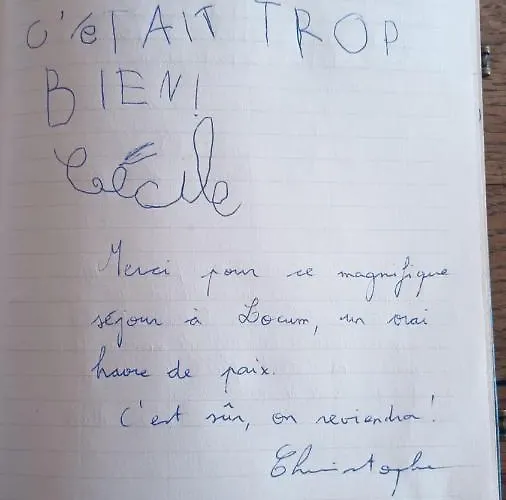 C'éTAIT TROP
BIEN!
Cécile
Merci pour ce magnifique
séjour à Locum, un vrai
havre de paix.
C'est sûr, on reviendra!
Christophe